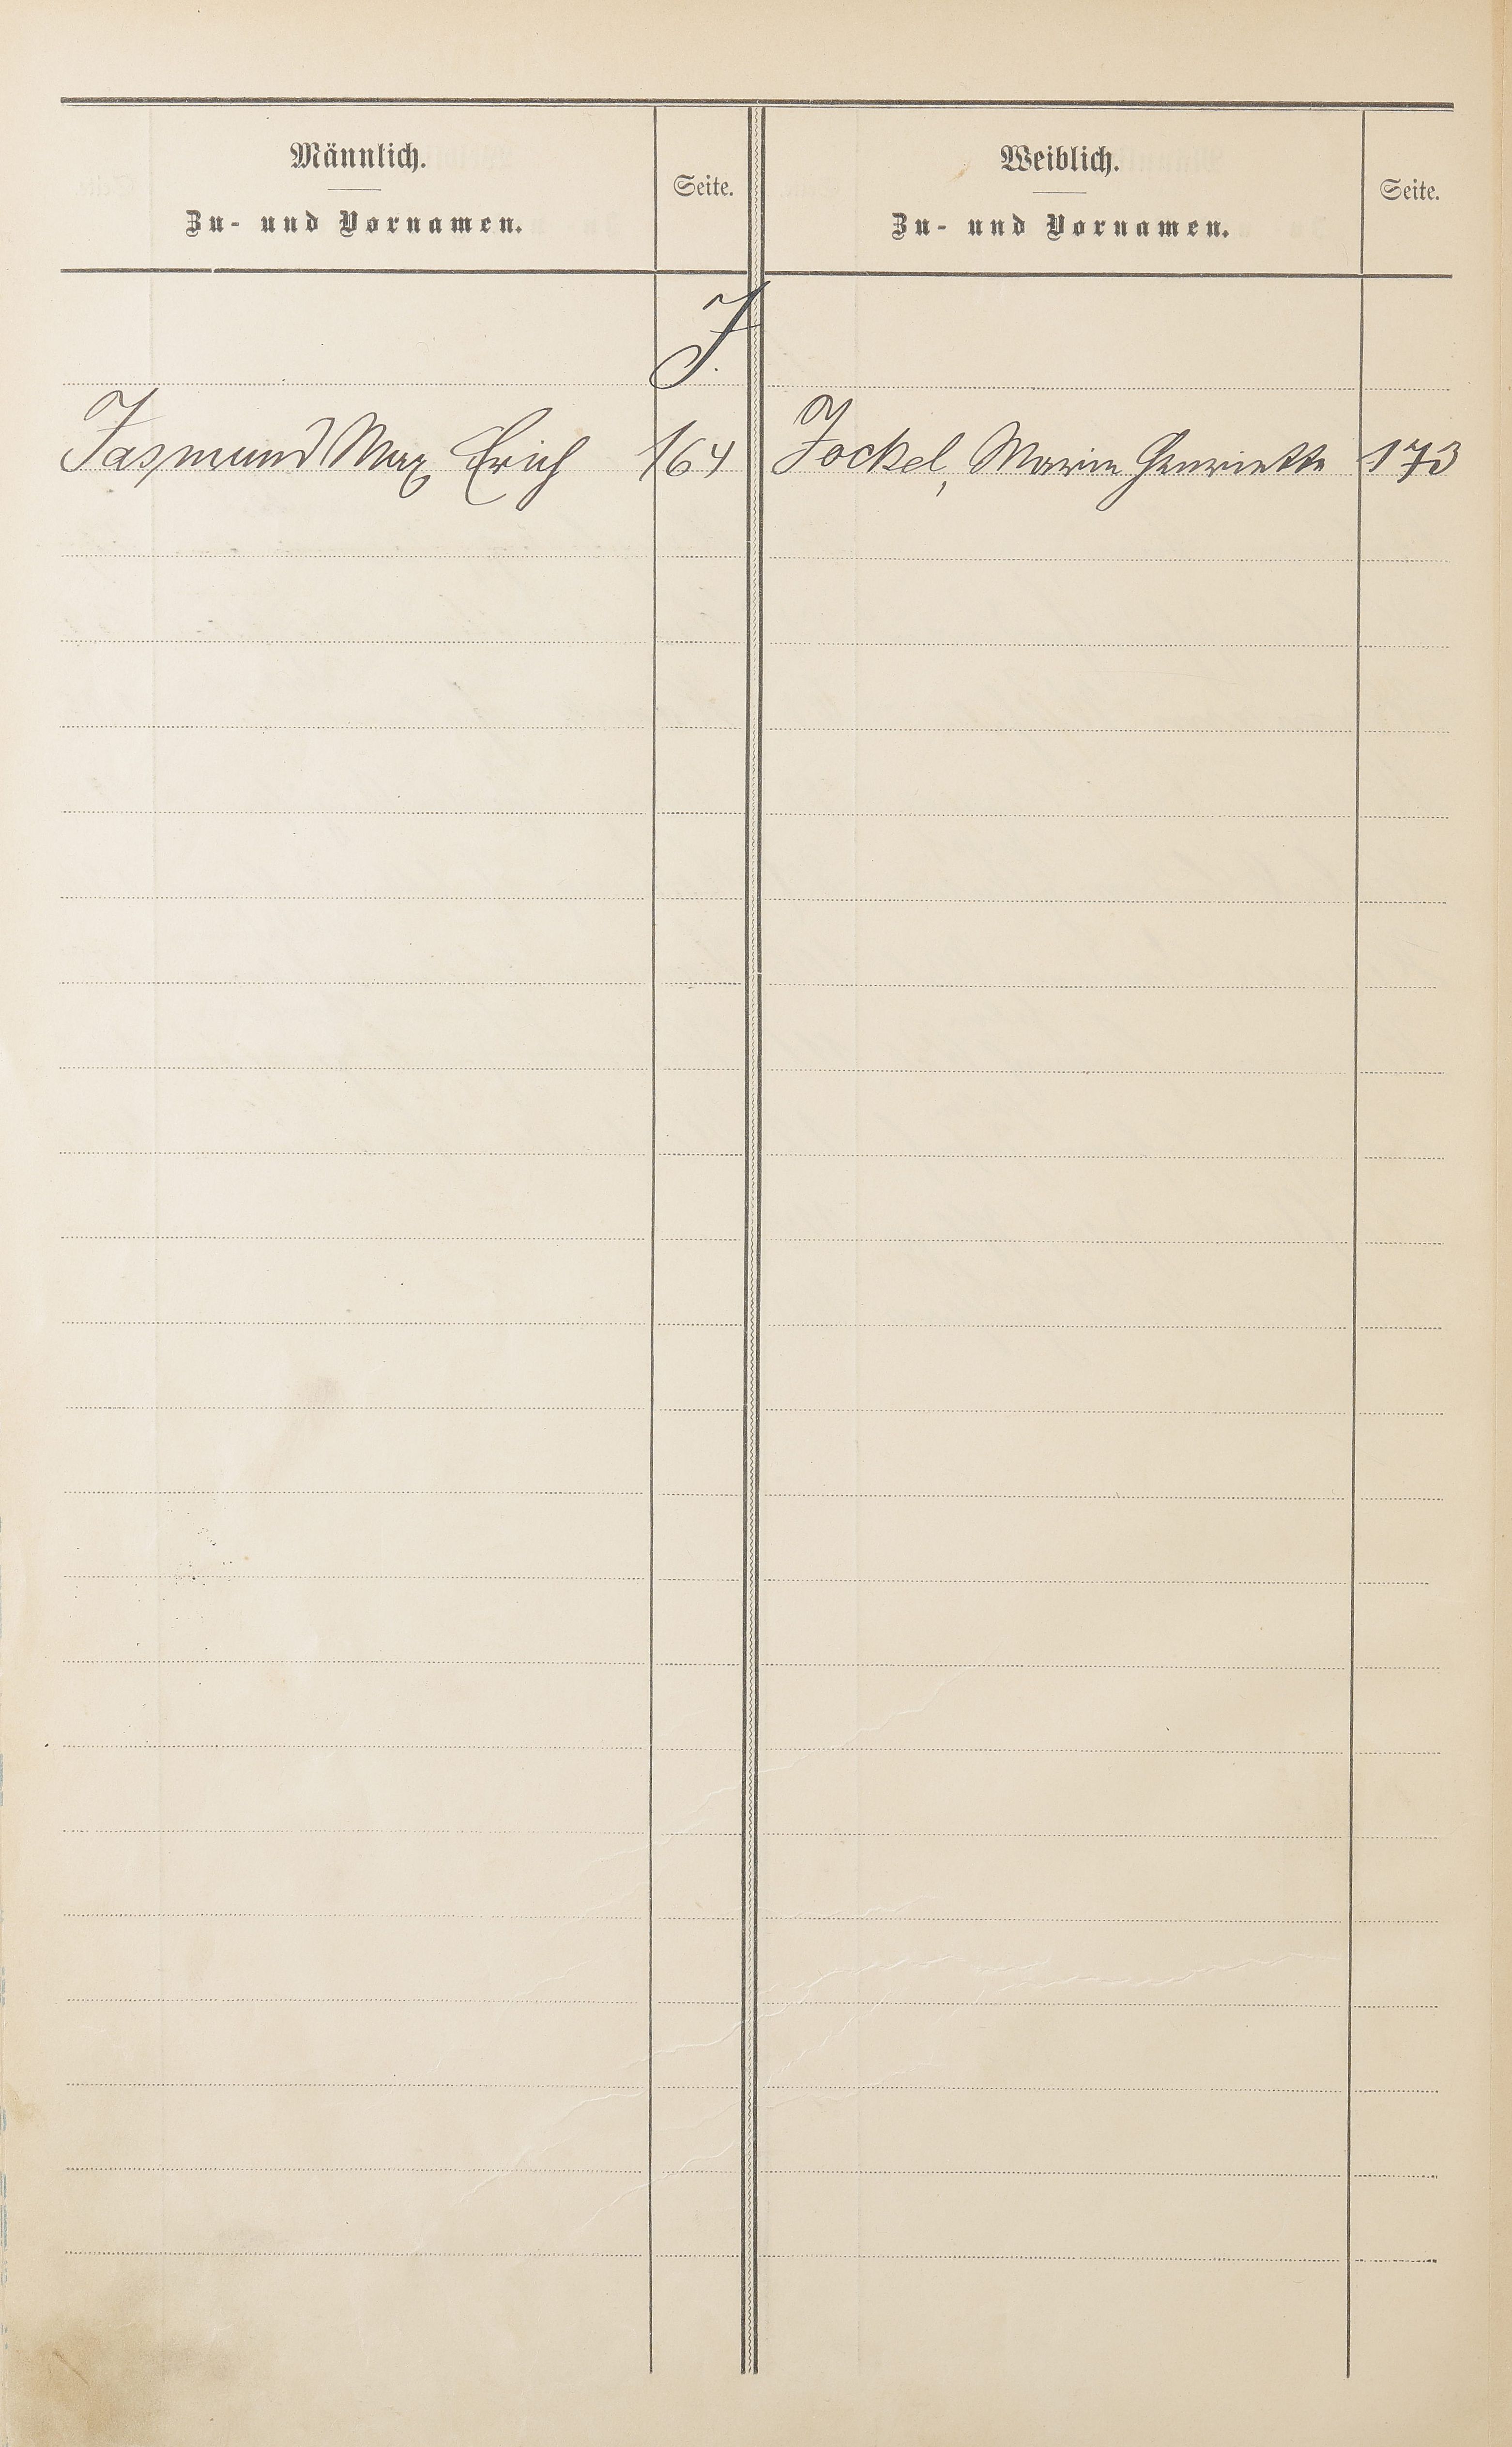 Männlich.
Zu- und Vornamen.
Seite.
Weiblich.
Zu- und Vornamen.
Seite.
J.
Jasmund Max Erich 164
Jockel, Marie Henriette 173